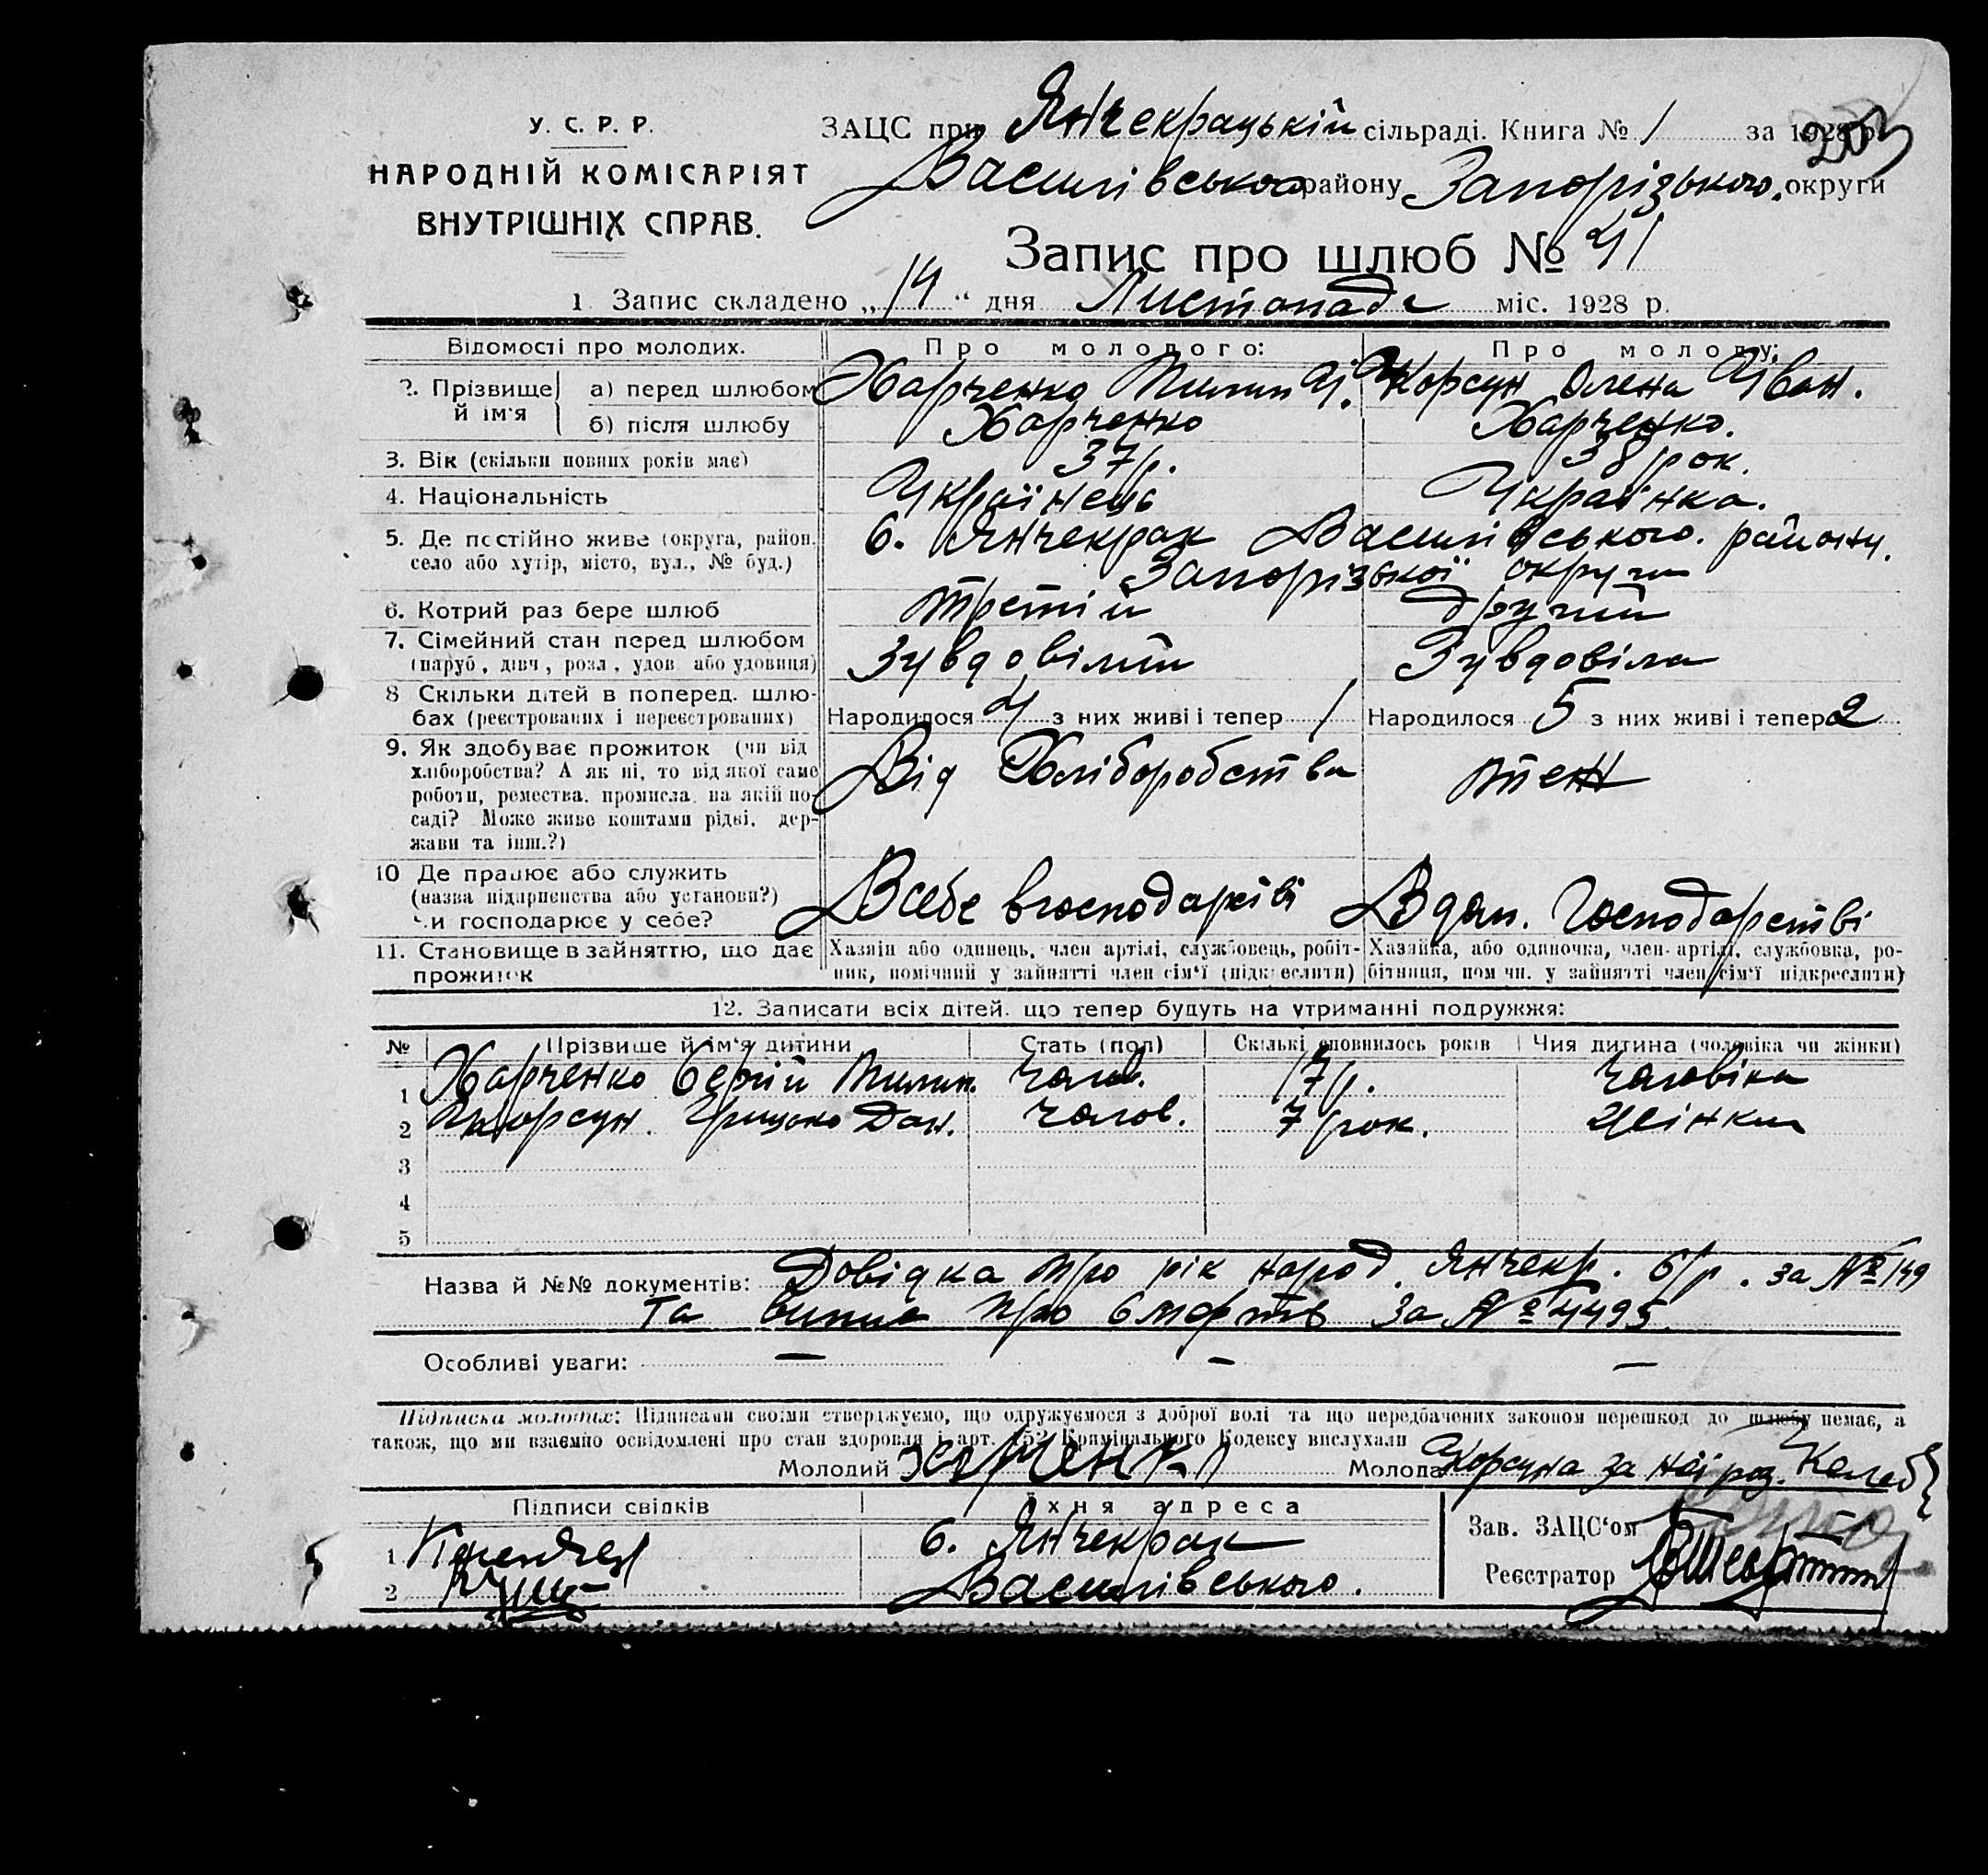 У. С. Р. Р.
НАРОДНІЙ КОМІСАРІЯТ
ВНУТРІШНІХ СПРАВ.
ЗАЦС при Янчекрацькій сільраді. Книга № 1 за 1928 р.
203
Василівського району Запорізького округи
Запис про шлюб № 41
1 Запис складено „14“ дня Листопада міс. 1928 р.
Відомості про молодих. Про молодого: Про молоду:
2. Прізвище й ім'я а) перед шлюбом Харченко Пилип Корсун Олена Іван.
б) після шлюбу Харченко Харченко.
3. Вік (скільки повних років має) 37 р. 38 рок.
4. Національність Українець Українка.
5. Де постійно живе (округа, район, с. Янчекрак Василівського району.
село або хутір, місто, вул., № буд.) Запорізької округи
6. Котрий раз бере шлюб третій другий
7. Сімейний стан перед шлюбом
(паруб., дівч., розл., удов. або удовиця) Зувдовілий Зувдовіла
8 Скільки дітей в поперед. шлю-
бах (реєстрованих і нереєстрованих) Народилося 4 з них живі і тепер 1 Народилося 5 з них живі і тепер 2
9. Як здобуває прожиток (чи від
хліборобства? А як ні, то від якої саме Від Хліборобства теж
роботи, ремества, промисла, на якій по-
саді? Може живе коштами рідні, дер-
жави та інш.?)
10 Де працює або служить
(назва підприємства або установи?) Всебе вгосподарстві В дом. Господарстві
чи господарює у себе?
11. Становище в зайняттю, що дає Хазяїн або одинець, член артілі, службовець, робіт- Хазяйка, або одиночка, член артілі, службовка, ро-
прожиток ник, помічний у зайнятті член сім'ї (підкреслити) бітниця, помічн. у зайнятті член сім'ї підкреслити)
12. Записати всіх дітей, що тепер будуть на утриманні подружжя:
№ Прізвище й ім'я дитини Стать (пол) Скількі сповнилось років Чия дитина (чоловіка чи жінки)
1 Харченко Сергій Пилип. чолов. 17 р. чоловіка
2 Корсун. Грицько Дан. чолов. 7 рок. жінки
3
4
5
Назва й №№ документів: Довідка про рік народ. Янчекр. с/р. за № 149
та випис про смерть за № 4495
Особливі уваги: — — —
Підписка молодих: Підписами своїми стверджуємо, що одружуємося з доброї волі та що передбачених законом перешкод до шлюбу немає, а
також, що ми взаємно освідомлені про стан здоровля і арт. 152 Кримінального Кодексу вислухали
Молодий Харченко Молода Корсуна за неї роз.
Підписи свідків Їхня адреса
Зав. ЗАЦС'ом
1 с. Янчекрак
Реєстратор
2 Василівського.